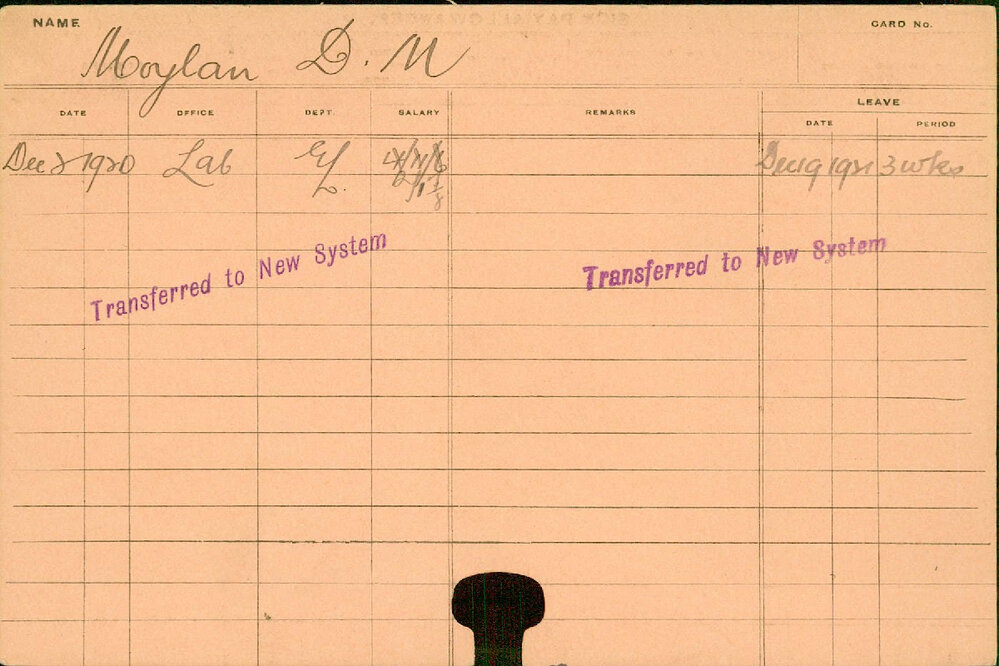 NAME
CARD No.
Moylan D. M
DATE OFFICE DEPT. SALARY REMARKS LEAVE
DATE PERIOD
Dec 2 1920 Lab Dec 19 1921 3 wks
Transferred to New System Transferred to New System